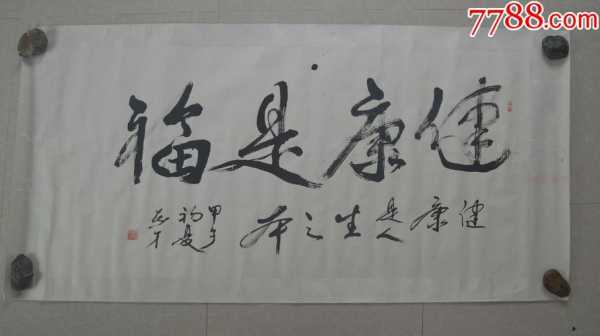 7788.com
健康是福
健康是人生之本
甲子
初夏